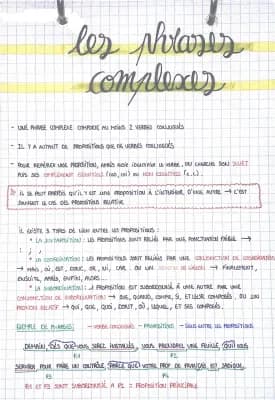 les phrases
complexes
- UNE PHRASE COMPLEXE COMPORTE AU MOINS 2 VERBES CONJUGUÉS
- IL Y A AUTANT DE PROPOSITIONS QUE DE VERBES CONJUGUÉS
- POUR REPÉRER UNE PROPOSITION, APRÈS AVOIR IDENTIFIÉ LE VERBE, ON CHERCHE SON SUJET
PUIS SES COMPLÉMENT ESSENTIELS (COD, COI) OU NON ESSENTIELS (C.C).
IL SE PEUT PARFOIS QU'IL Y EST UNE PROPOSITION À L'INTÉRIEUR D'UNE AUTRE → C'EST
SOUVENT LE CAS DES PROPOSITIONS RELATIVE
IL EXISTE 3 TYPES DE LIEN ENTRE LES PROPOSITIONS :
* LA JUXTAPOSITION : LES PROPOSITIONS SONT RELIÉS PAR UNE PONCTUATION FAIBLE →
: ; ,
* LA COORDINATION : LES PROPOSITIONS SONT RELIÉS PAR UNE CONJONCTION DE COORDINATION
→ MAIS, OÙ, EST, DONC, OR, NI, CAR OU UN DE LIAISON → FINALEMENT,
ENSUITE, APRÈS, ENFIN, ALORS...
* LA SUBORDINATION : PROPOSITION EST SUBORDONNÉE À UNE AUTRE PAR UNE
CONJONCTION DE SUBORDINATION → QUE, QUAND, COMME, SI, ET LEURS COMPOSÉS, OU UN
PRONOM RELATIF → QUI, QUE, QUOI, DONT, OÙ, LEQUEL, ET SES COMPOSÉS.
EXEMPLE DE PHRASES : — VERBE CONJUGUÉ — PROPOSITIONS — LIENS ENTRE LES PROPOSITIONS
DEMAIN, DÈS QUE VOUS SEREZ INSTALLÉS, VOUS PRENDREZ UNE FEUILLE, QUI VOUS
P1 P2
SERVIRA POUR FAIRE UN CONTRÔLE, PARCE QUE VOTRE PROF DE FRANÇAIS EST SADIQUE.
P3 P4
P1 ET P3 SONT SUBORDONNÉ À P2 = PROPOSITION PRINCIPALE